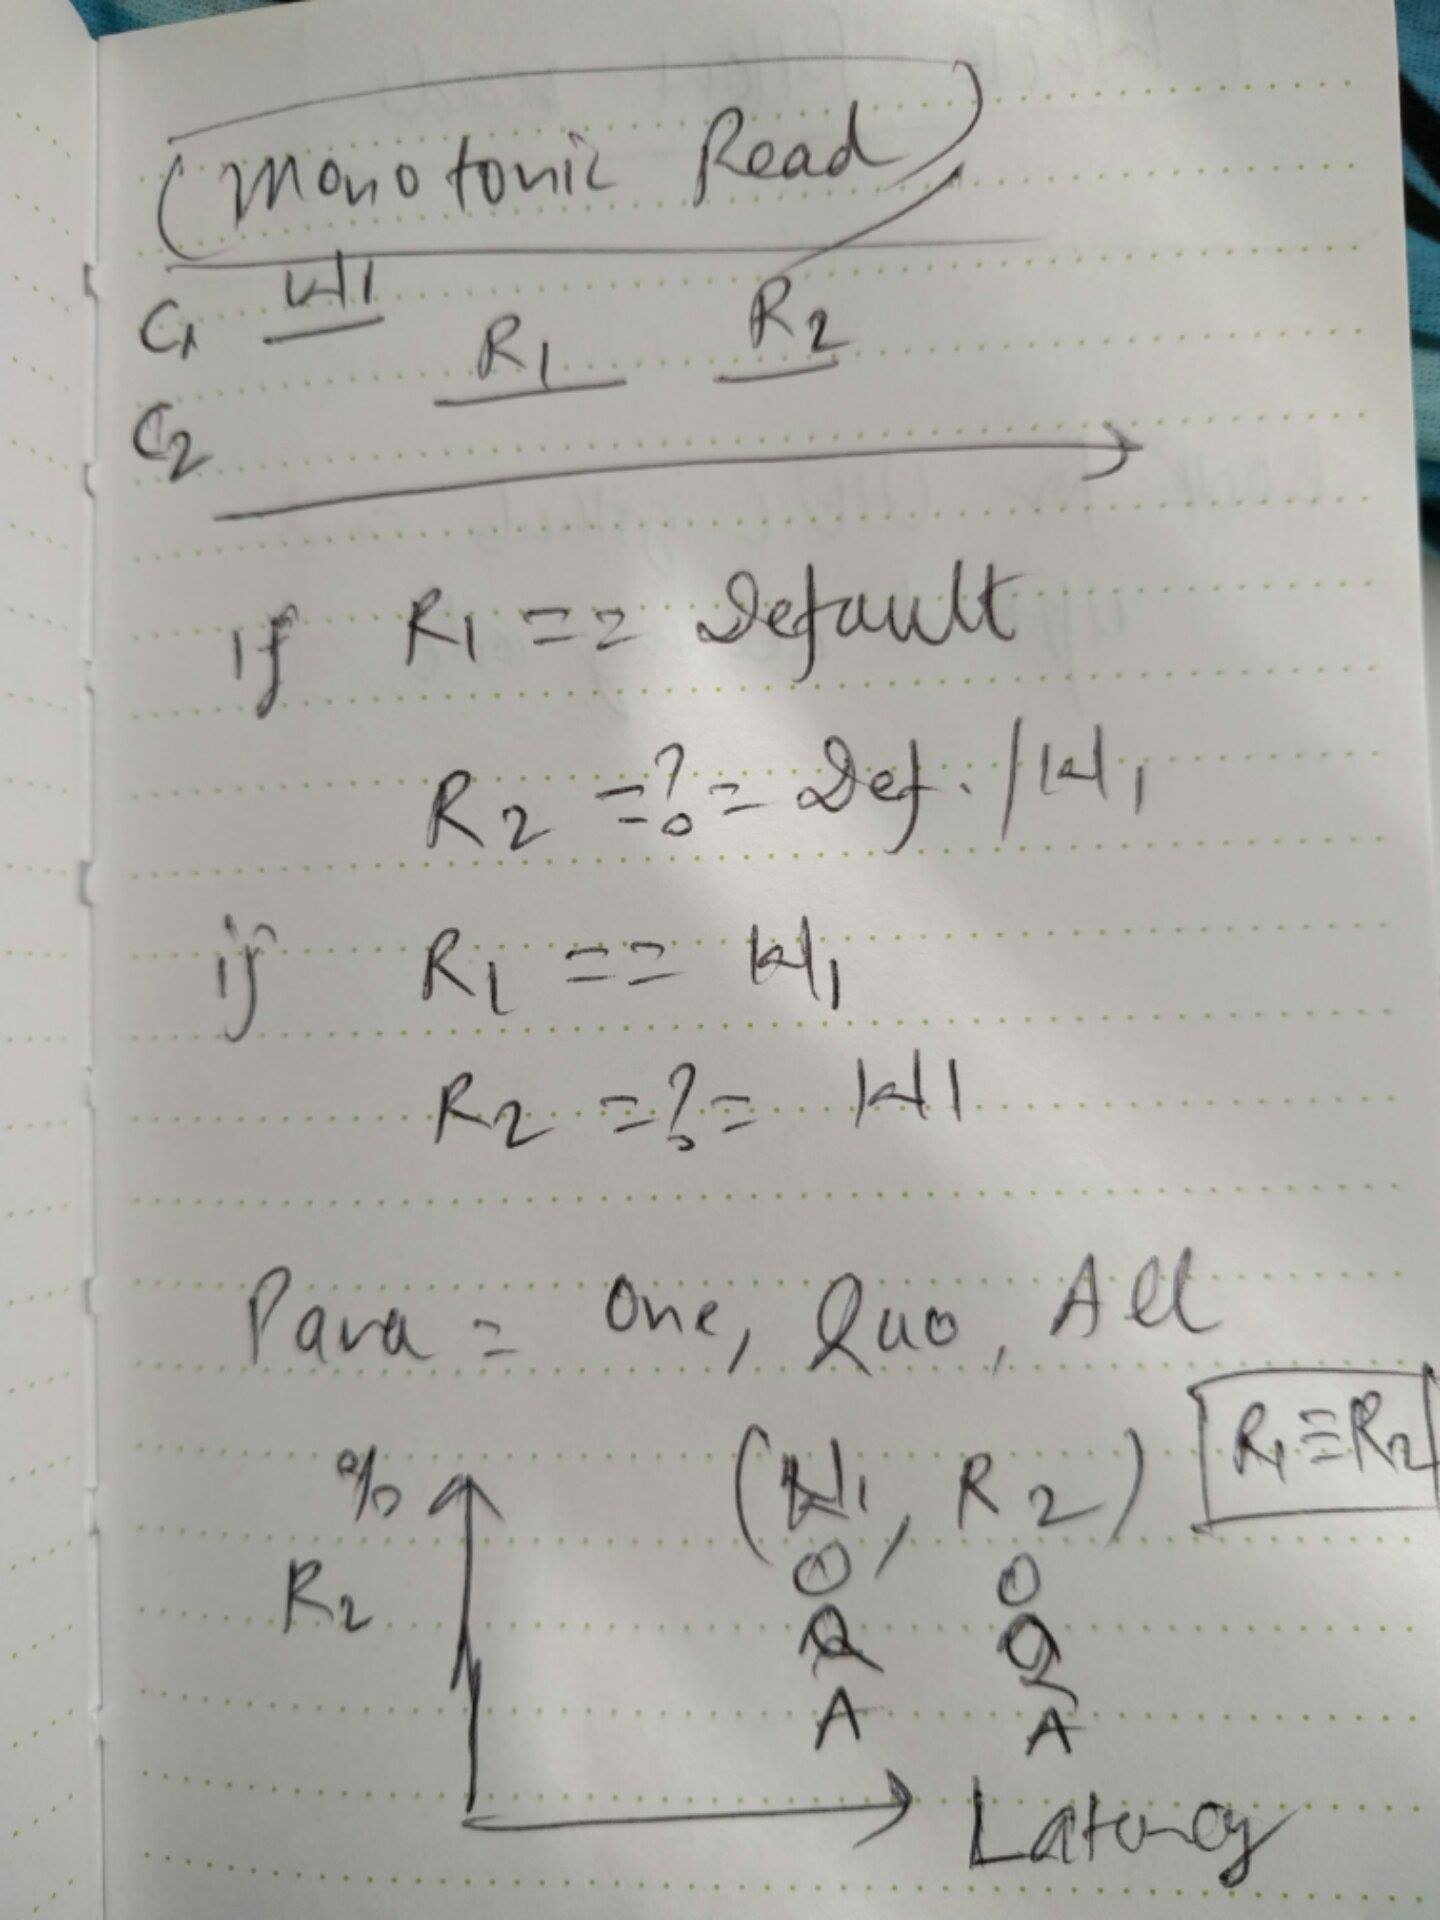 Monotonic Read
C1 W1 R1 R2
C2
if R1 == Default
R2 =?= Def. / W1
if R1 == W1
R2 =?= W1
Para = One, Quo, All
% (W1, R2) R1 ≡ R2
O O
R2 Q Q
A A
Latency